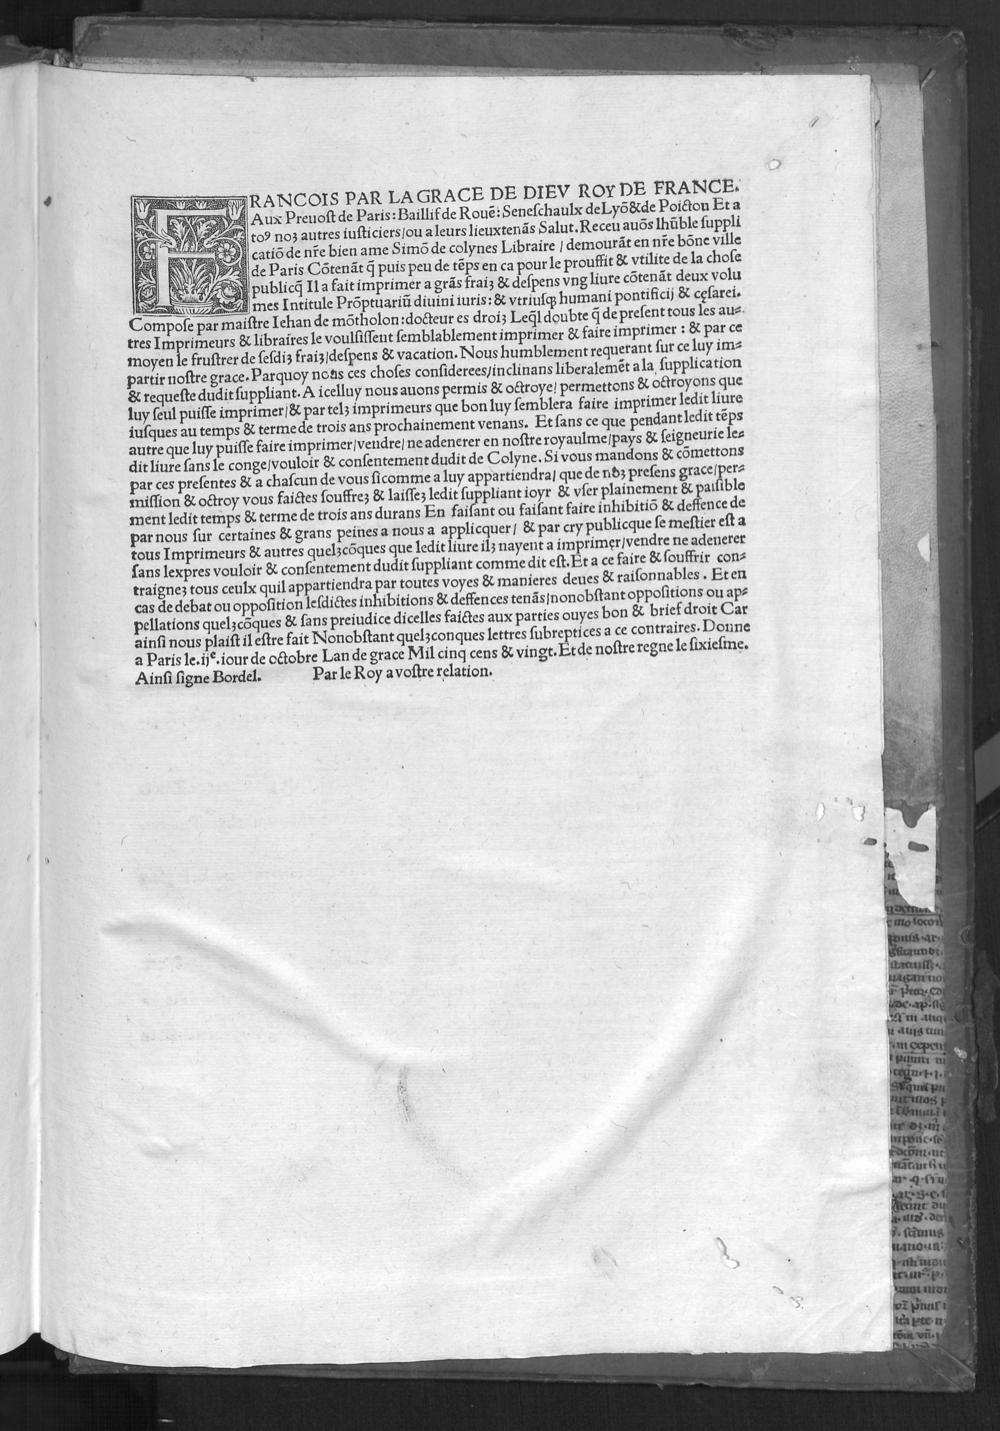 FRANCOIS PAR LA GRACE DE DIEV ROY DE FRANCE.
Aux Preuost de Paris: Baillif de Rouē: Seneſchaulx de Lyō & de Poictou Et a
toꝰ noz autres iuſticiers/ou a leurs lieuxtenās Salut. Receu auōs lhūble ſuppli
catiō de nr̄e bien ame Simō de colynes Libraire / demourāt en nr̄e bōne ville
de Paris Cōtenāt q̄ puis peu de tēps en ca pour le prouffit & vtilite de la choſe
publicq̄ Il a fait imprimer a grās fraiz & deſpens vng liure cōtenāt deux volu
mes Intitule Prōptuariū diuini iuris: & vtriuſqꝫ humani pontificij & cęſarei.
Compoſe par maiſtre Iehan de mōtholon: docteur es droiz Leq̄l doubte q̄ de preſent tous les au⸗
tres Imprimeurs & libraires le voulſiſſent ſemblablement imprimer & faire imprimer : & par ce
moyen le fruſtrer de ſeſdiz fraiz/deſpens & vacation. Nous humblement requerant ſur ce luy im⸗
partir noſtre grace. Parquoy nous ces choſes conſiderees/inclinans liberalemēt a la ſupplication
& requeſte dudit ſuppliant. A icelluy nous auons permis & octroye/ permettons & octroyons que
luy ſeul puiſſe imprimer/& par telz imprimeurs que bon luy ſemblera faire imprimer ledit liure
iuſques au temps & terme de trois ans prochainement venans. Et ſans ce que pendant ledit tēps
autre que luy puiſſe faire imprimer/vendre/ ne adenerer en noſtre royaulme/pays & ſeigneurie le⸗
dit liure ſans le conge/vouloir & conſentement dudit de Colyne. Si vous mandons & cōmettons
par ces preſentes & a chaſcun de vous ſicomme a luy appartiendra/ que de noz preſens grace/per⸗
miſſion & octroy vous faictes ſouffrez & laiſſez ledit ſuppliant ioyr & vſer plainement & paiſible
ment ledit temps & terme de trois ans durans En faiſant ou faiſant faire inhibitiō & deffence de
par nous ſur certaines & grans peines a nous a applicquer/ & par cry publicque ſe meſtier eſt a
tous Imprimeurs & autres quelzcōques que ledit liure ilz nayent a imprimer/vendre ne adenerer
ſans lexpres vouloir & conſentement dudit ſuppliant comme dit eſt. Et a ce faire & ſouffrir con⸗
traignez tous ceulx quil appartiendra par toutes voyes & manieres deues & raiſonnables. Et en
cas de debat ou oppoſition leſdictes inhibitions & deffences tenās/nonobſtant oppoſitions ou ap⸗
pellations quelzcōques & ſans preiudice dicelles faictes aux parties ouyes bon & brief droit Car
ainſi nous plaiſt il eſtre fait Nonobſtant quelzconques lettres ſubreptices a ce contraires. Donne
a Paris le. ijᵉ. iour de octobre Lan de grace Mil cinq cens & vingt. Et de noſtre regne le ſixieſme.
Ainſi ſigne Bordel. Par le Roy a voſtre relation.